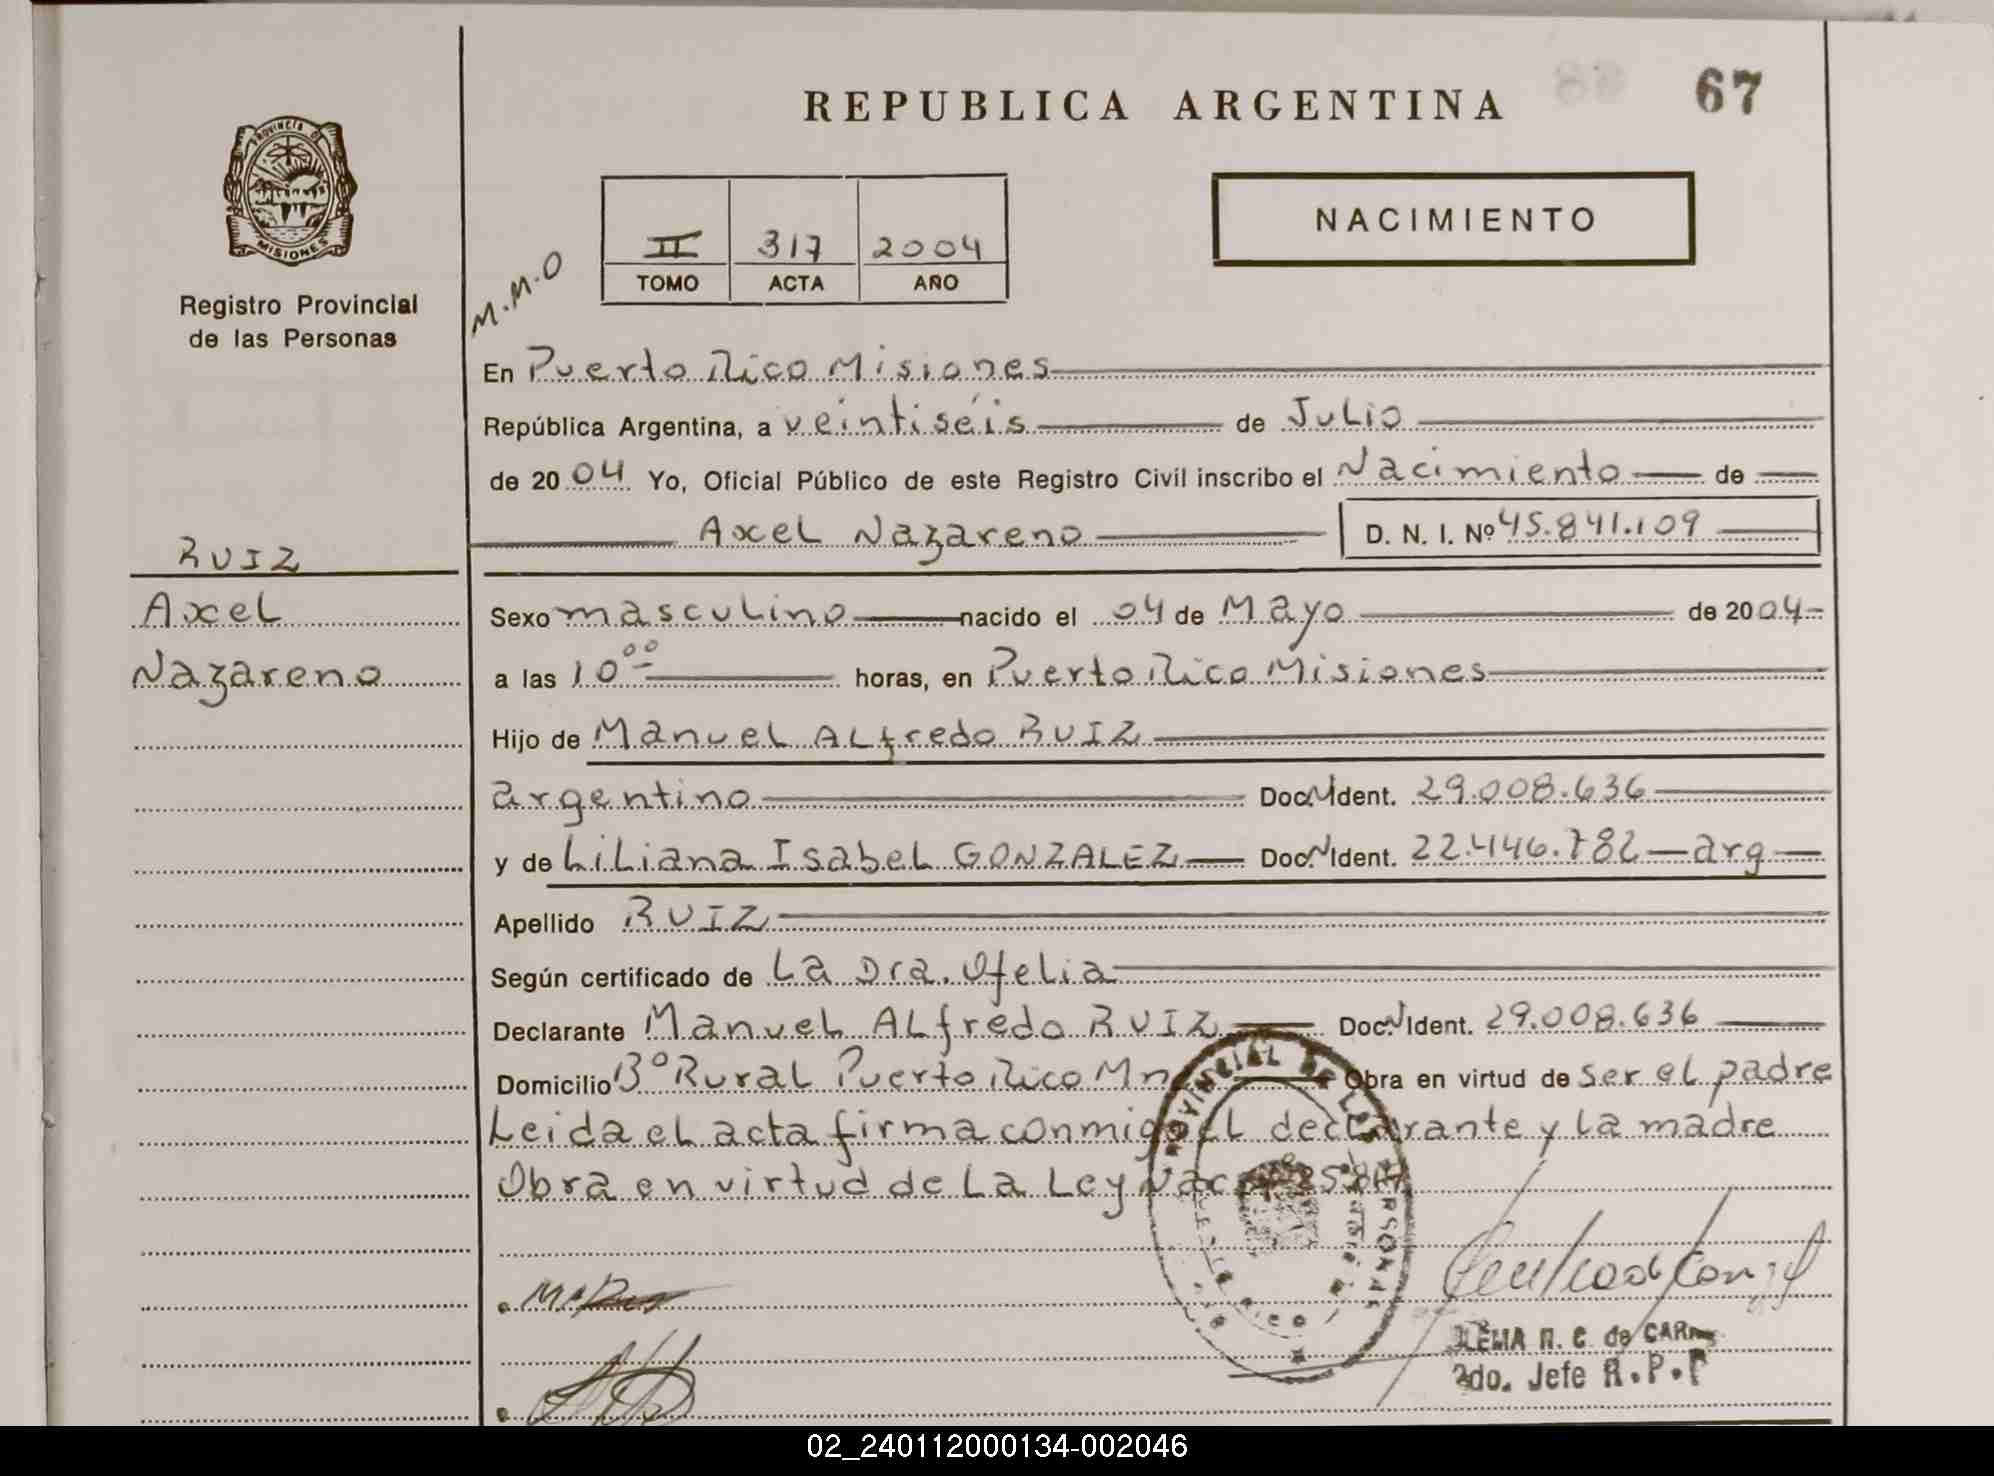 REPUBLICA ARGENTINA
67
PROVINCIA D
MISIONES
Registro Provincial
de las Personas
M.M.O
II 317 2004
TOMO ACTA AÑO
NACIMIENTO
En Puerto Rico Misiones
República Argentina, a veintiséis de Julio
de 2004 Yo, Oficial Público de este Registro Civil inscribo el Nacimiento de
Axel Nazareno D. N. I. Nº 45.841.109
RUIZ
Axel
Nazareno
Sexo masculino nacido el 04 de Mayo de 2004
a las 10 00 horas, en Puerto Rico Misiones
Hijo de Manuel Alfredo RUIZ
argentino Doc. N Ident. 29.008.636
y de Liliana Isabel GONZALEZ Doc. N Ident. 22.446.782 arg
Apellido RUIZ
Según certificado de La Dra. Ofelia
Declarante Manuel Alfredo RUIZ Doc. N Ident. 29.008.636
Domicilio Bº Rural Puerto Rico Mn Obra en virtud de ser el padre
Leida el acta firma conmigo el declarante y la madre
Obra en virtud de la Ley Nac
2do. Jefe R.P.P
02_240112000134-002046